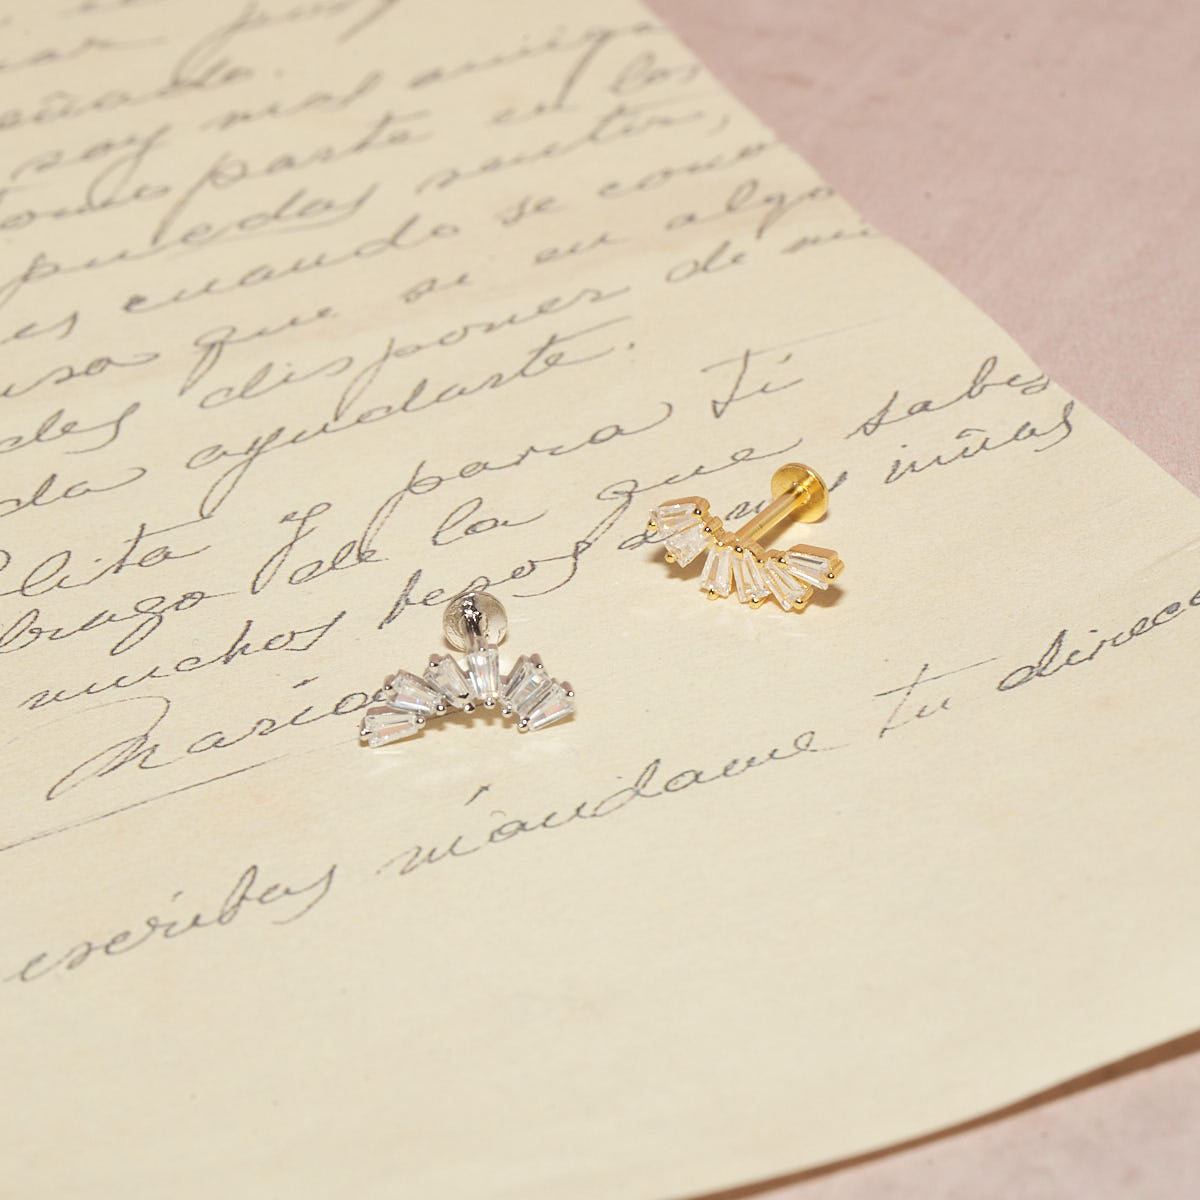 soy mas amiga
parte en los
puedas sentir,
es cuando se como
que si en algo
des disponer de mi
da ayudarte.
lita y para Ti
de la que sabes
muchos besos de mis niñas
Maria
escribas mandame tu direcc